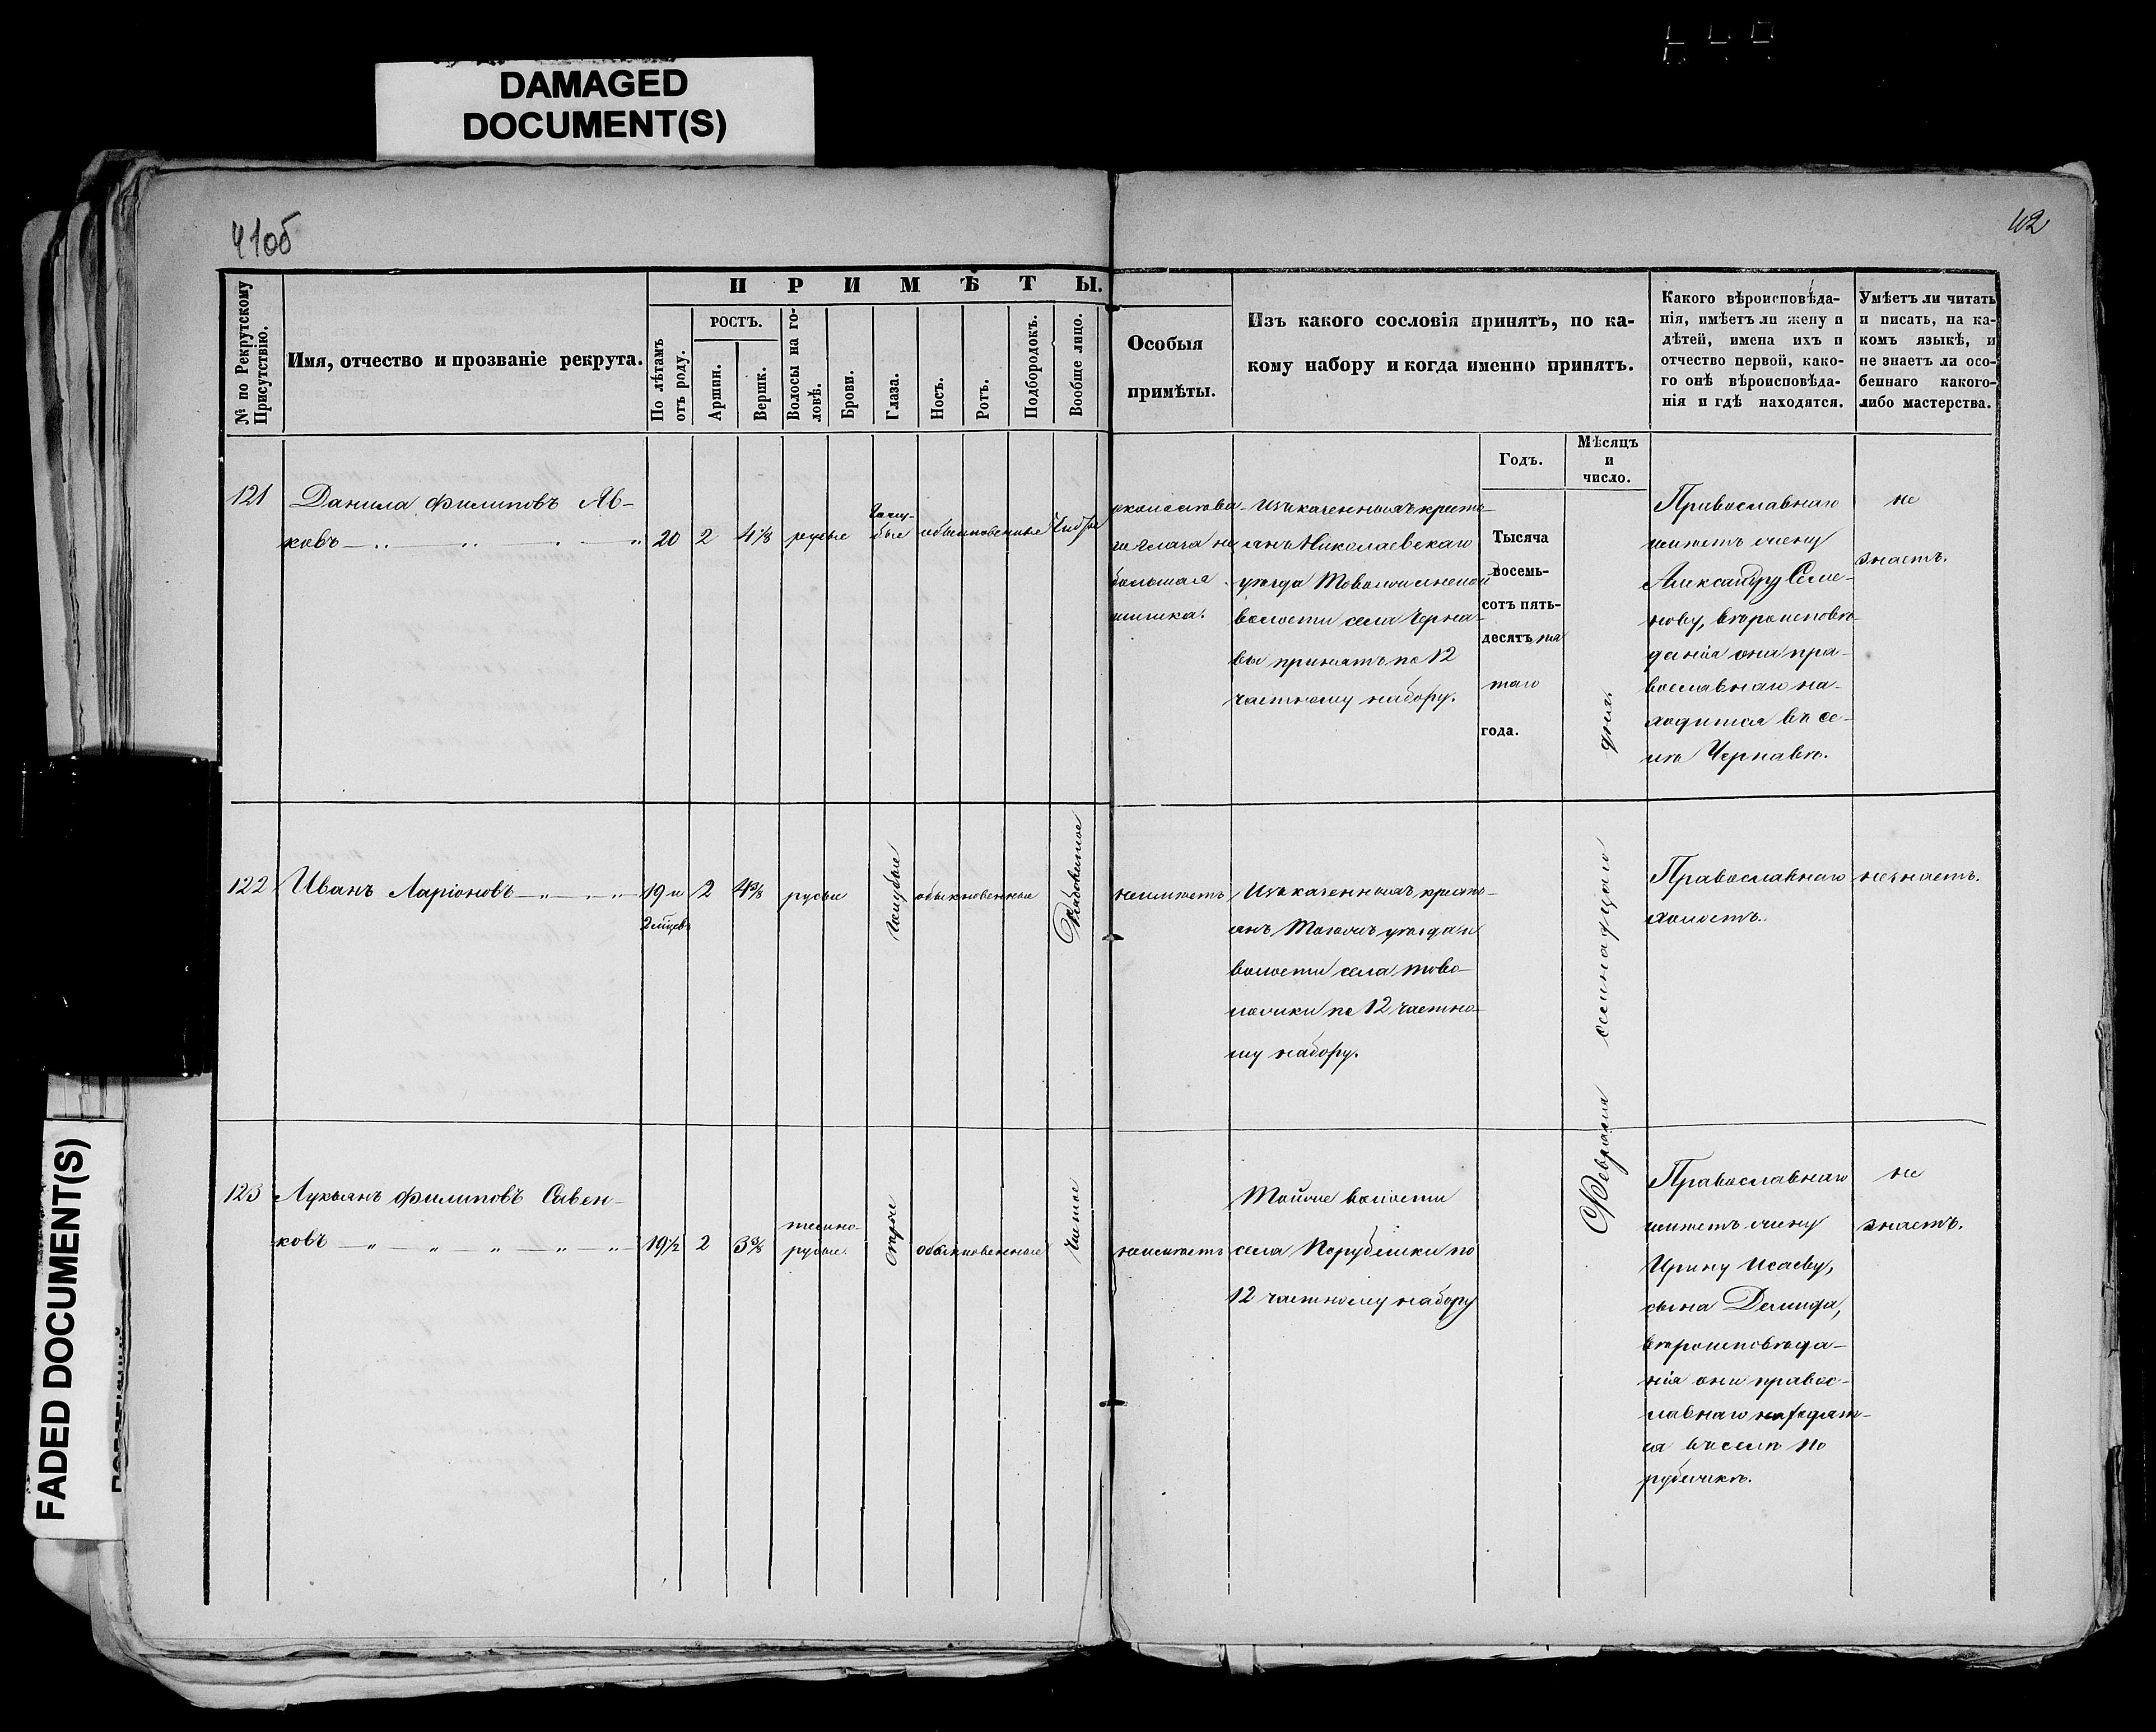 DAMAGED
DOCUMENT(S)
FADED DOCUMENT(S)
41об
42
№ по Рекрутскому
Присутствію.
Имя, отчество и прозваніе рекрута.
ПРИМѢТЫ.
По лѣтамъ
отъ роду.
РОСТЪ.
Аршин.
Вершк.
Волосы на го-
ловѣ.
Брови.
Глаза.
Носъ.
Ротъ.
Подбородокъ.
Вообще лицо.
Особыя
примѣты.
Изъ какого сословія принятъ, по ка-
кому набору и когда именно принятъ.
Какого вѣроисповѣда-
нія, имѣетъ ли жену и
дѣтей, имена ихъ и
отчество первой, како-
го онѣ вѣроисповѣда-
нія и гдѣ находятся.
Умѣетъ ли читать
и писать, на ка-
комъ языкѣ, и
не знаетъ ли осо-
беннаго какого-
либо мастерства.
Годъ.
Мѣсяцъ
и
число.
121
Данила Филиповъ Яв-
ковъ
20
2
4 1/8
русые
Голу-
бые
обыкновенные
около лева-
го глаза не
большая
шишка.
Изъ казенныхъ кресть-
янъ Николаевскаго
уѣзда Товолжинской
волости села Черна-
вы принятъ по 12
частному набору.
Тысяча
восемь-
сотъ пять-
десятъ пя
таго
года.
Февраля осьмнадцаго дня
Православнаго
имѣетъ жену
Александру Семе-
нову, вѣроисповѣ-
данія она пра-
вославнаго на-
ходится въ се-
лѣ Чернавѣ.
не
знаетъ.
122
Иванъ Ларіоновъ
19 и
2 мѣцевъ
2
4 3/8
русые
Голубые
обыкновенные
Рябоватое
неимѣетъ
Изъ казенныхъ кресть-
янъ Тогожъ уѣзда и
волости села Тово-
ложки по 12 частно-
му набору.
Православнаго
холостъ.
незнаетъ.
123
Лукьянъ Филиповъ Савен-
ковъ
19 1/2
2
темно-
русые.
Серые
обыкновенные
Чистое
неимѣетъ
Тойже волости
села Порубежки по
12 частному набору
Православнаго
имѣетъ жену
Ирину Исаеву,
сына Демида,
вѣроисповѣда-
нія они правос-
лавнаго находят-
ся въ селѣ По
рубежкѣ.
не
знаетъ.